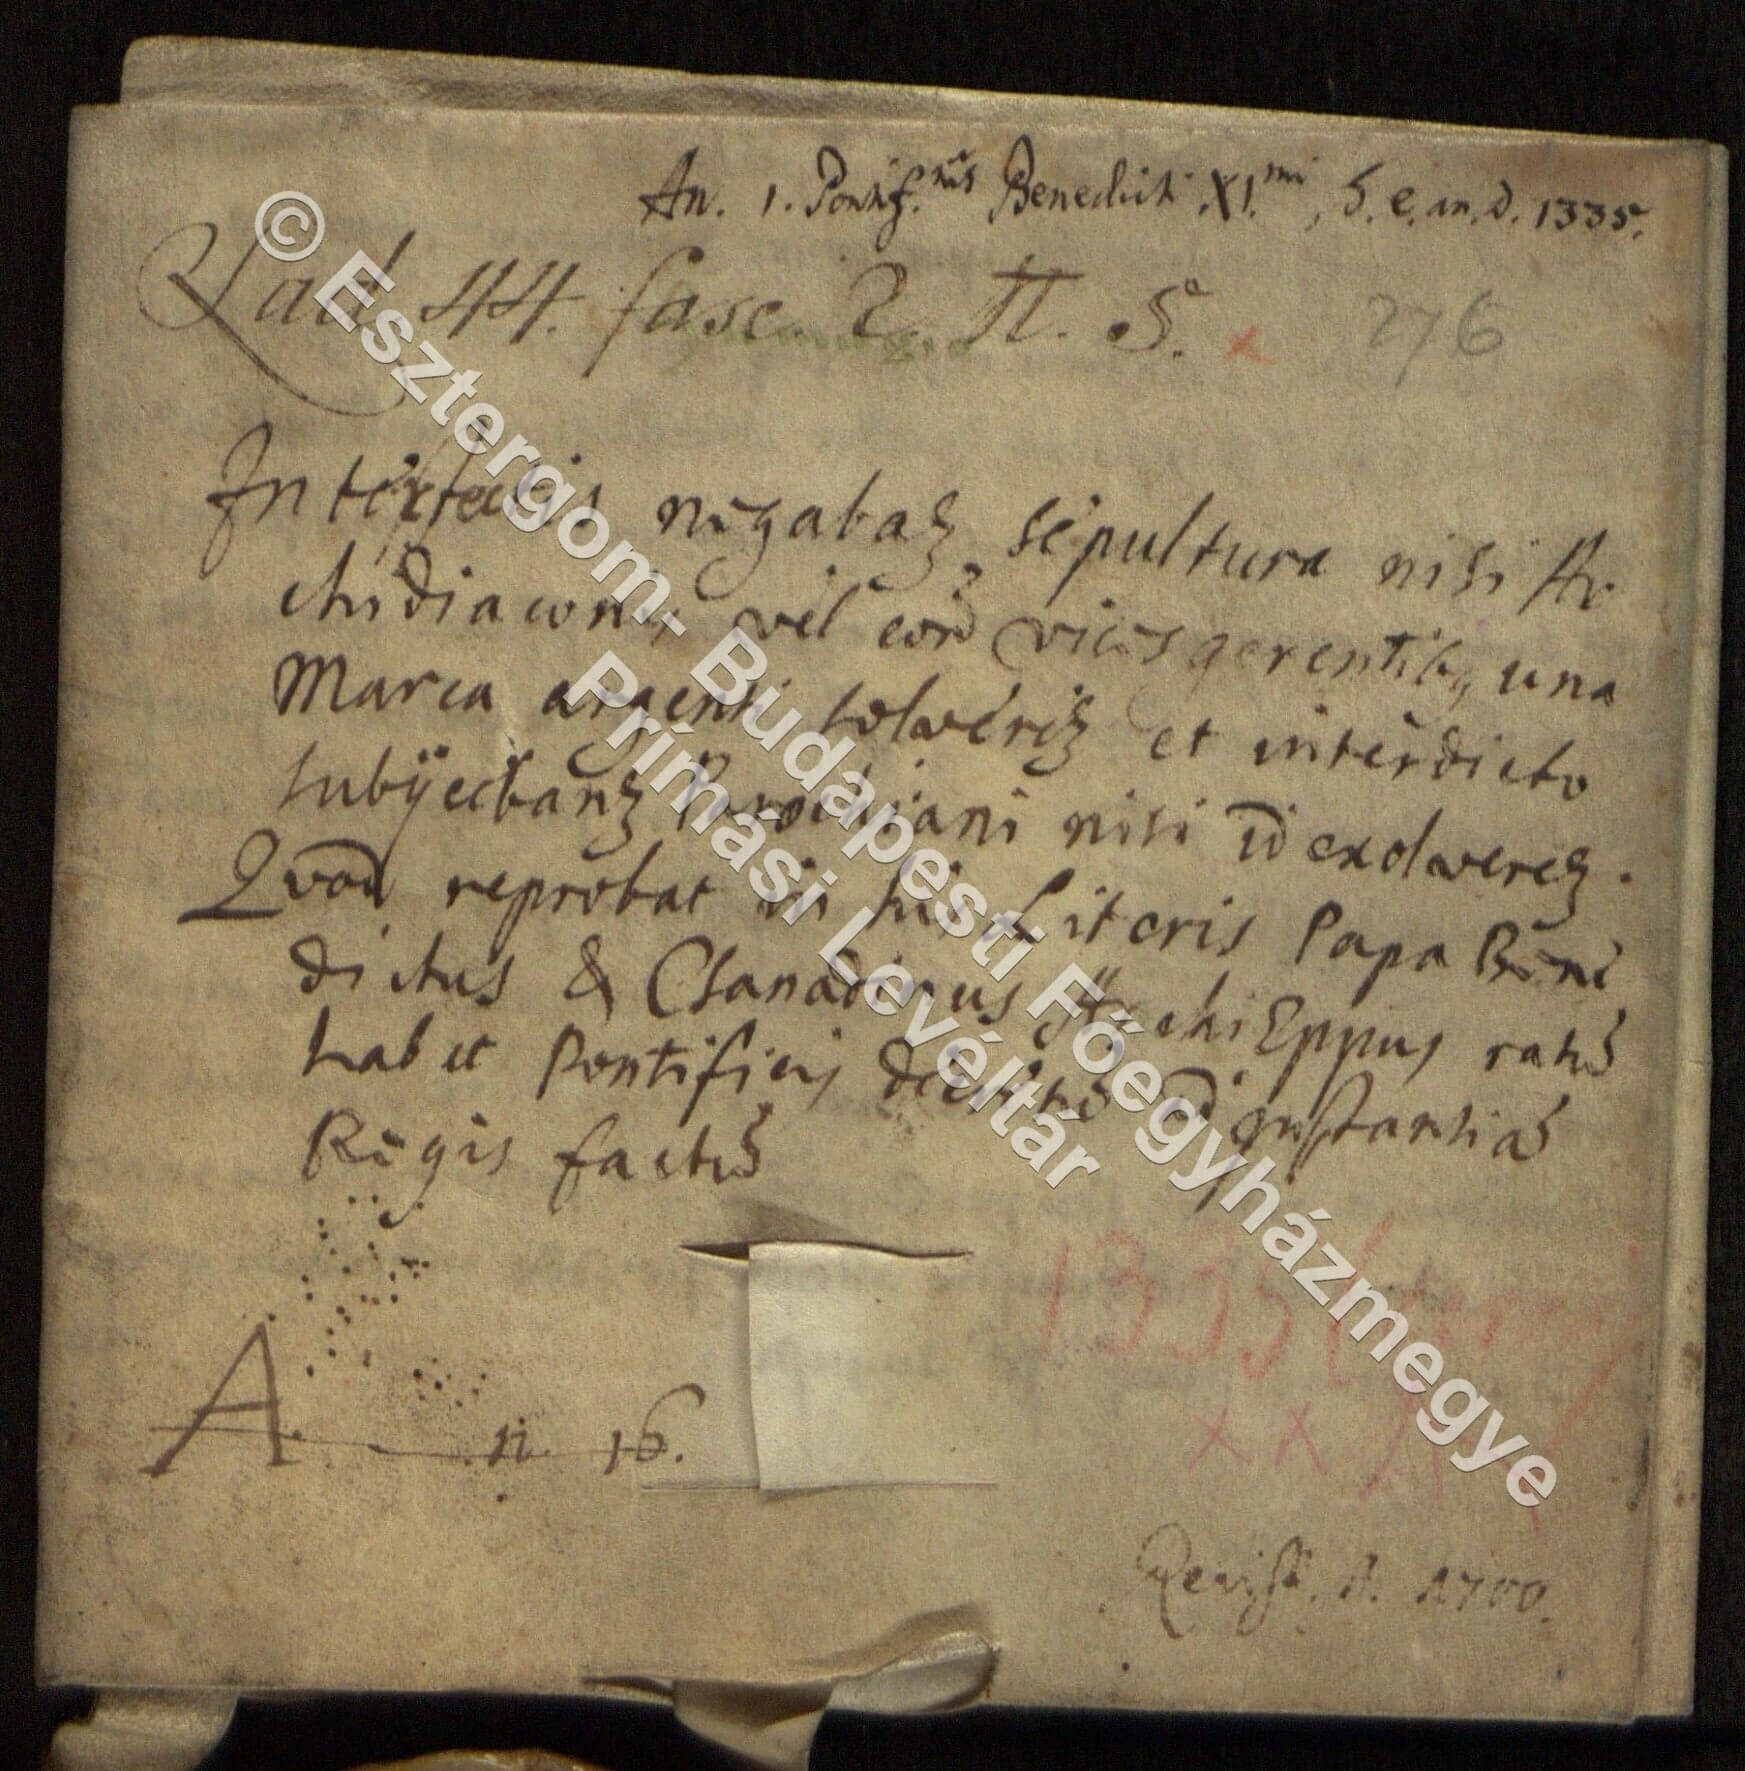 An. 1. Pontif.tus Benedicti XI.mi, S. e. an. d. 1335.
Lad. 44. fasc. 2. N. 5.
276
Interfectis negabaꝫ sepultura nisi Ar
chidiaconis vel eorū vices gerentibꝫ una
Marca argenti solveriꝫ et interdicto
subÿectbanꝫ Parochiani nisi id exolvereꝫ.
Qvod reprobat in suis Literis Papa Bene
dictus & Chanadinus Archi Eppus ratū
habet Pontificis ad instantiā
Regis factū
1335
xx
A. n. 16.
Revis. A. 1700.
© Esztergom- Budapesti Főegyházmegye
Prímási Levéltár